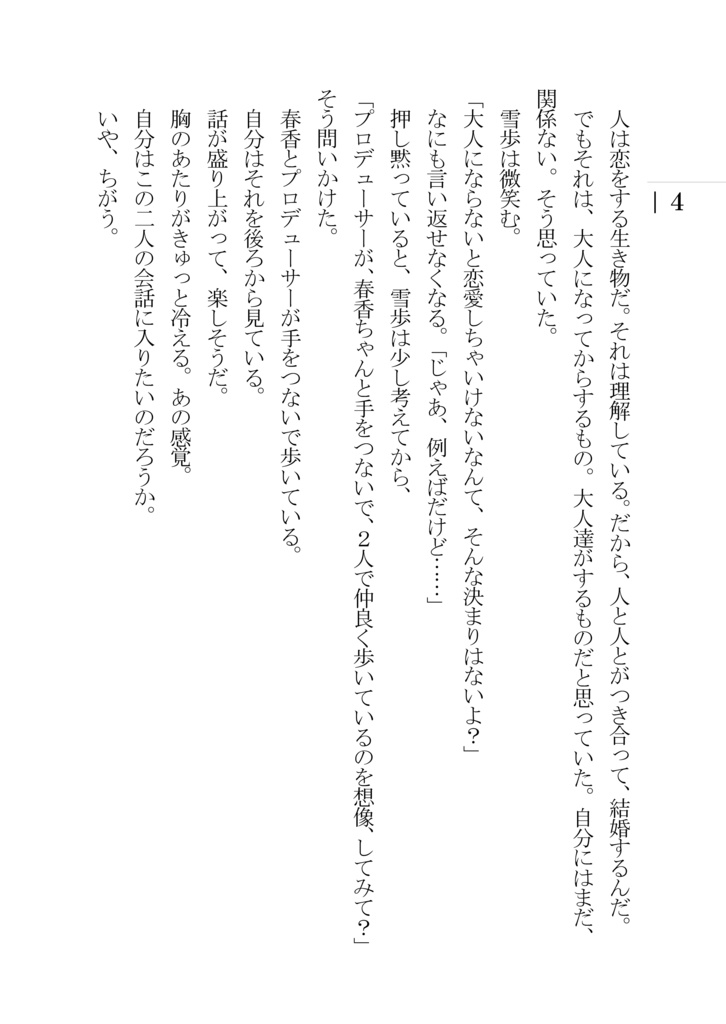 4
人は恋をする生き物だ。それは理解している。だから、人と人とがつき合って、結婚するんだ。
でもそれは、大人になってからするもの。大人達がするものだと思っていた。自分にはまだ、
関係ない。そう思っていた。
雪歩は微笑む。
「大人にならないと恋愛しちゃいけないなんて、そんな決まりはないよ？」
なにも言い返せなくなる。「じゃあ、例えばだけど……」
押し黙っていると、雪歩は少し考えてから、
「プロデューサーが、春香ちゃんと手をつないで、２人で仲良く歩いているのを想像、してみて？」
そう問いかけた。
春香とプロデューサーが手をつないで歩いている。
自分はそれを後ろから見ている。
話が盛り上がって、楽しそうだ。
胸のあたりがきゅっと冷える。あの感覚。
自分はこの二人の会話に入りたいのだろうか。
いや、ちがう。